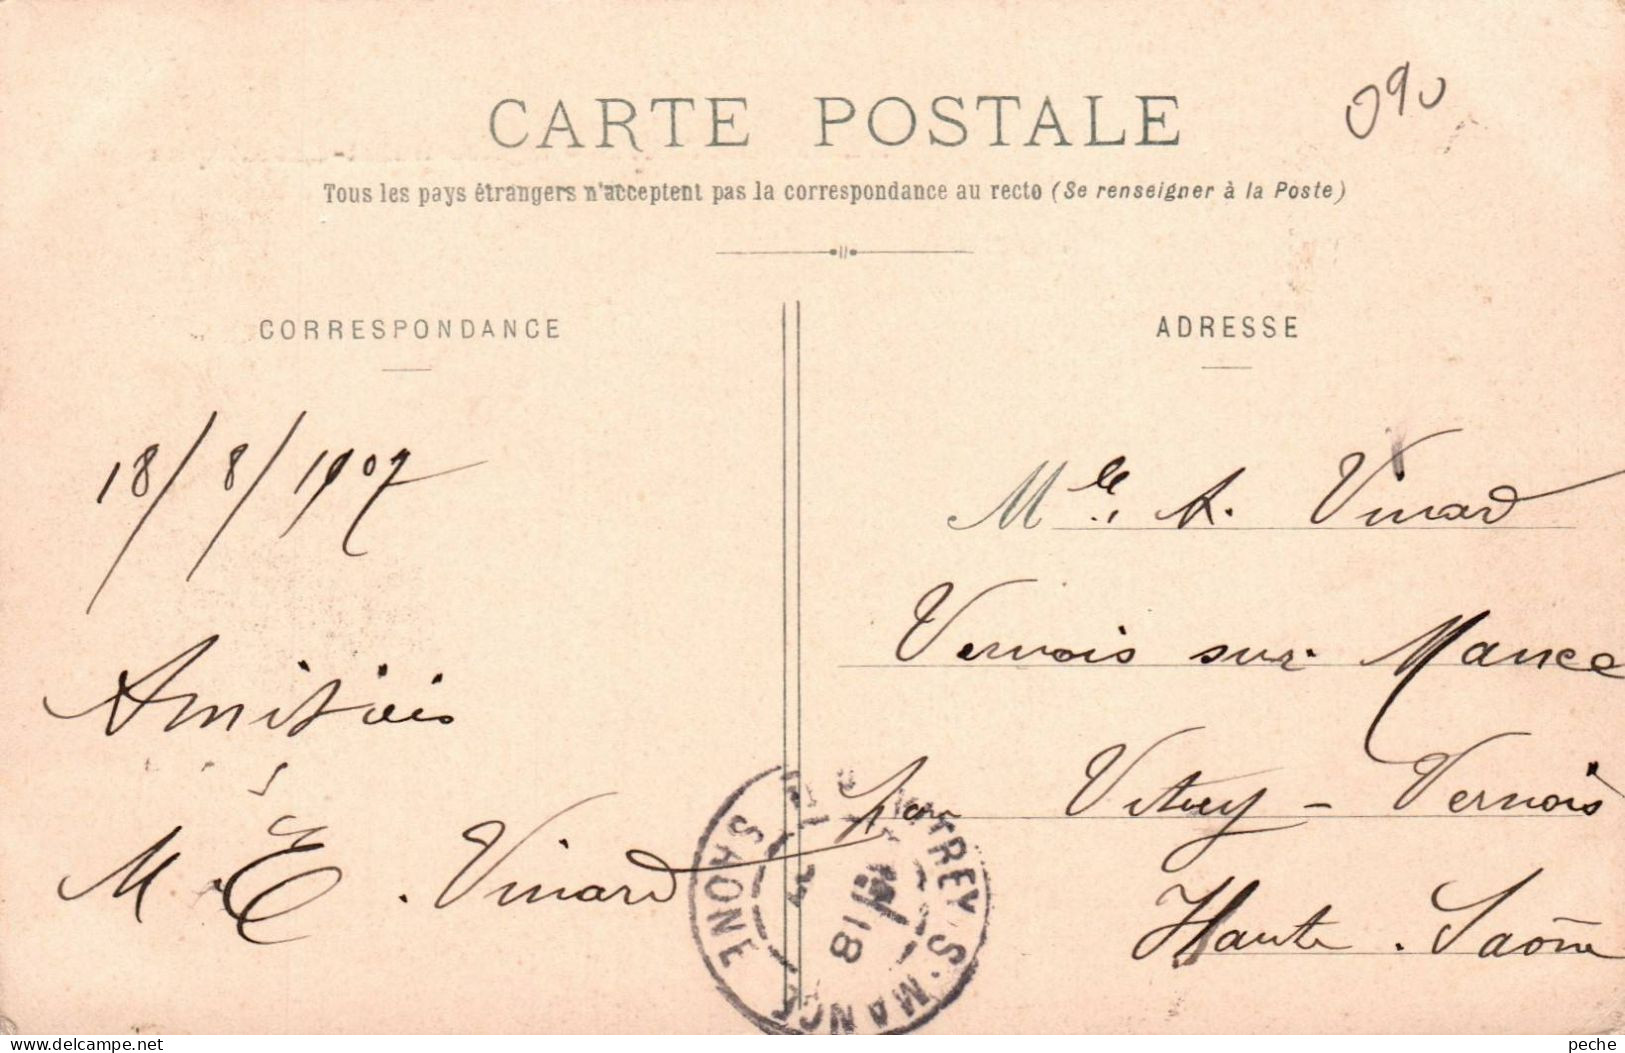 CARTE POSTALE
090
Tous les pays étrangers n'acceptent pas la correspondance au recto (Se renseigner à la Poste)
CORRESPONDANCE
18/8/1907
Amitiés
M E. Vinard
ADRESSE
Mlle A. Vinard
Vernois sur Mance
par Vitrey - Vernois
Haute-Saône
VITREY S.MANCE
18
SAONE
delcampe.net
peche